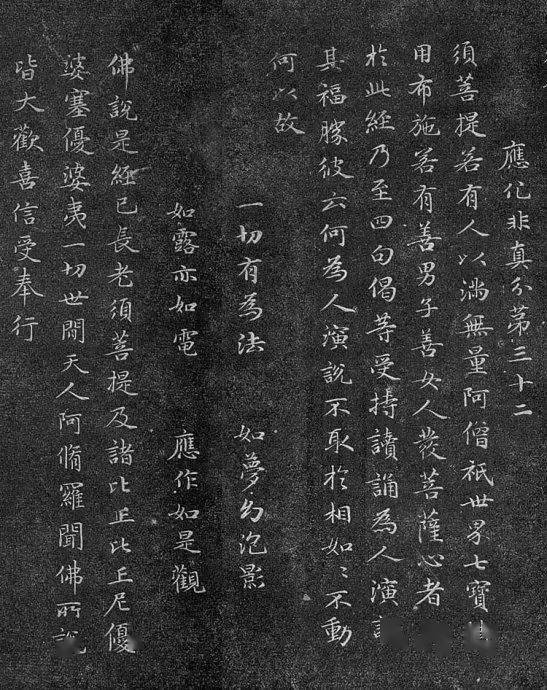 應化非真分第三十二
須菩提若有人以滿無量阿僧祇世界七寶
用布施若有善男子善女人發菩薩心者
於此經乃至四句偈等受持讀誦為人演
其福勝彼云何為人演說不取於相如〻不動
何以故
一切有為法 如夢幻泡影
如露亦如電 應作如是觀
佛說是經已長老須菩提及諸比丘比丘尼優
婆塞優婆夷一切世間天人阿脩羅聞佛所說
皆大歡喜信受奉行